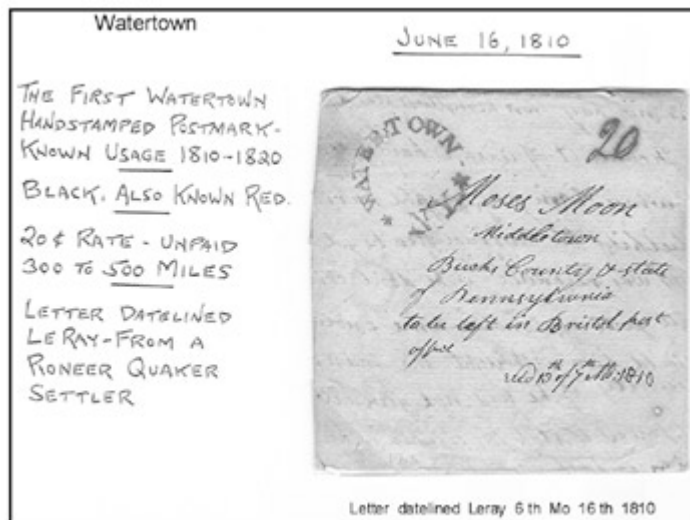 Watertown
JUNE 16, 1810
THE FIRST WATERTOWN
HANDSTAMPED POSTMARK-
KNOWN USAGE 1810-1820
BLACK. ALSO KNOWN RED.
20¢ RATE - UNPAID
300 TO 500 MILES
LETTER DATELINED
LERAY-FROM A
PIONEER QUAKER
SETTLER
WATERTOWN
N.Y.
20
Moses Moon
Middletown
Bucks County & state
of Pennsylvania
to be left in Bristol post
office
13th of 7th Mo: 1810
Letter datelined Leray 6 th Mo 16 th 1810